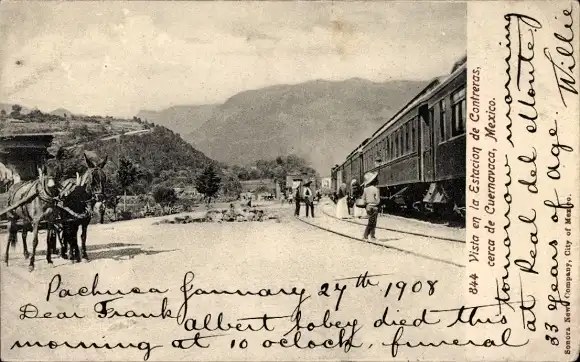 844 Vista en la Estacion de Contreras,
cerca de Cuernavaca, Mexico.
Sonora News Company, City of Mexico.
Pachuca January 27th 1908
Dear Frank,
Albert Tobey died this
morning at 10 o'clock, funeral
tomorrow morning
at Real del Monte,
33 years of age. Willie